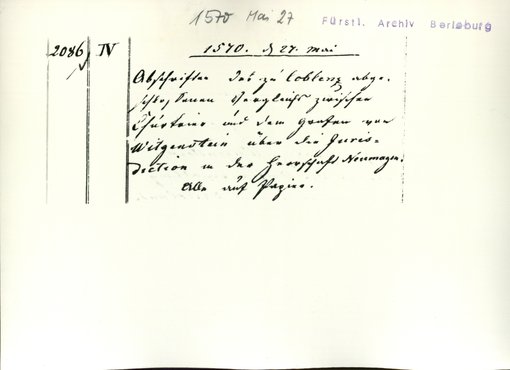 1570 Mai 27
Fürstl. Archiv Berleburg
2086 IV 1570. d 27. Mai
Abschriften des zu Coblenz abge-
schlossenen Vergleichs zwischen
Churtrier und dem Grafen von
Witgenstein über die Juris-
diction in der Herrschaft Neumagen.
Alle auf Papier.